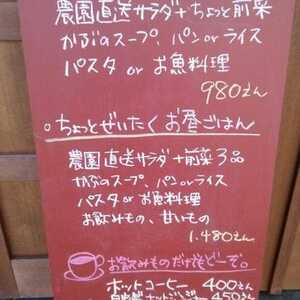 農園直送サラダ+ちょっと前菜
かぶのスープ、パンorライス
パスタ or お魚料理
980えん
。ちょっとぜいたくお昼ごはん
農園直送サラダ+前菜3品
かぶのスープ、パンorライス
パスタorお魚料理
お飲みもの、甘いもの
1.480えん
お飲みものだけもどーぞ。
ホットコーヒー 400えん
450えん